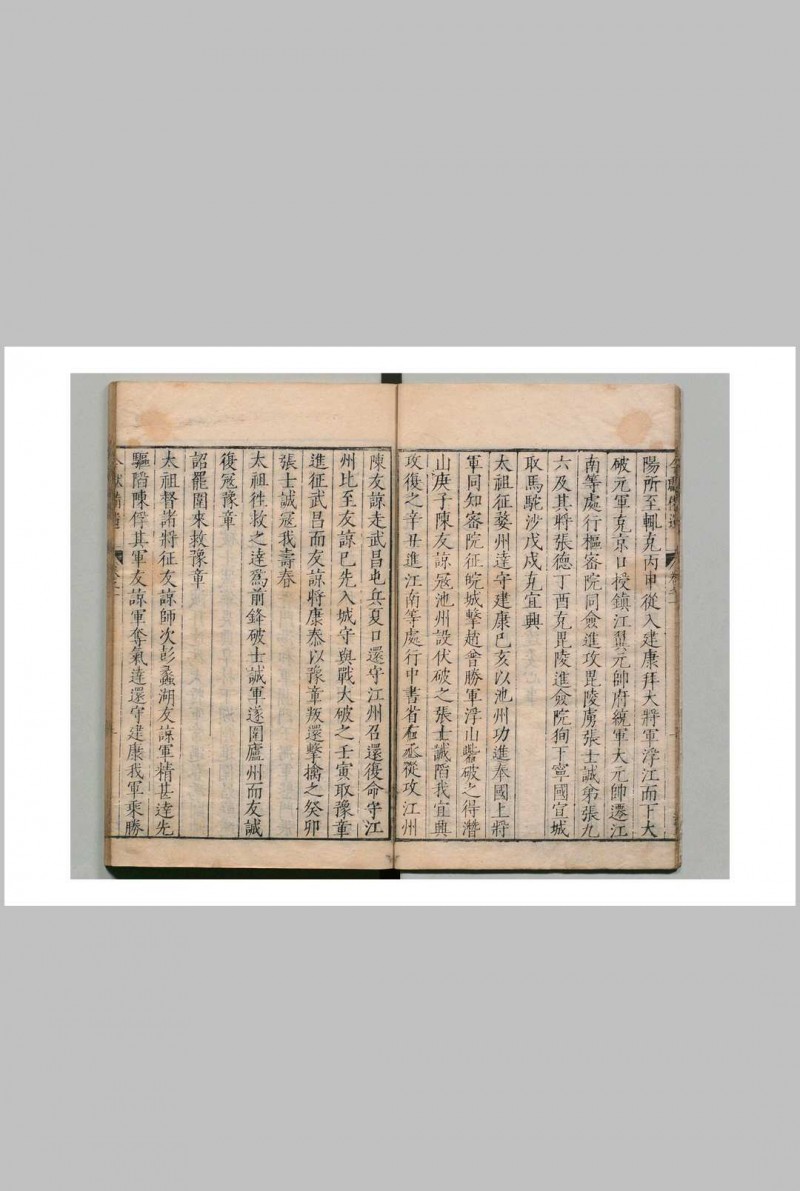 陽所至輒克丙申從入建康拜大將軍浮江而下大
破元軍克京口授鎮江翼元帥府統軍大元帥遷江
南等處行樞密院同僉進攻毘陵虜張士誠弟張九
六及其將張德丁酉克毘陵進僉院狥下寧國宣城
取馬駝沙戊戌克宜興
太祖征婺州達守建康已亥以池州功進奉國上將
軍同知密院征皖城擊趙普勝軍浮山砦破之得潛
山庚子陳友諒宼池州設伏破之張士誠陷我宜興
攻復之辛丑進江南等處行中書省右丞從攻江州
陳友諒走武昌屯兵夏口還守江州召還復命守江
州比至友諒已先入城守與戰大破之壬寅取豫章
進征武昌而友諒將康泰以豫章叛還擊擒之癸卯
張士誠冦我壽春
太祖徃救之達爲前鋒破士誠軍遂圍廬州而友誠
復冦豫章
詔罷圍來救豫章
太祖督諸將征友諒師次彭蠡湖友諒軍精甚達先
驅陷陳俘其軍友諒軍奪氣達還守建康我軍乗勝